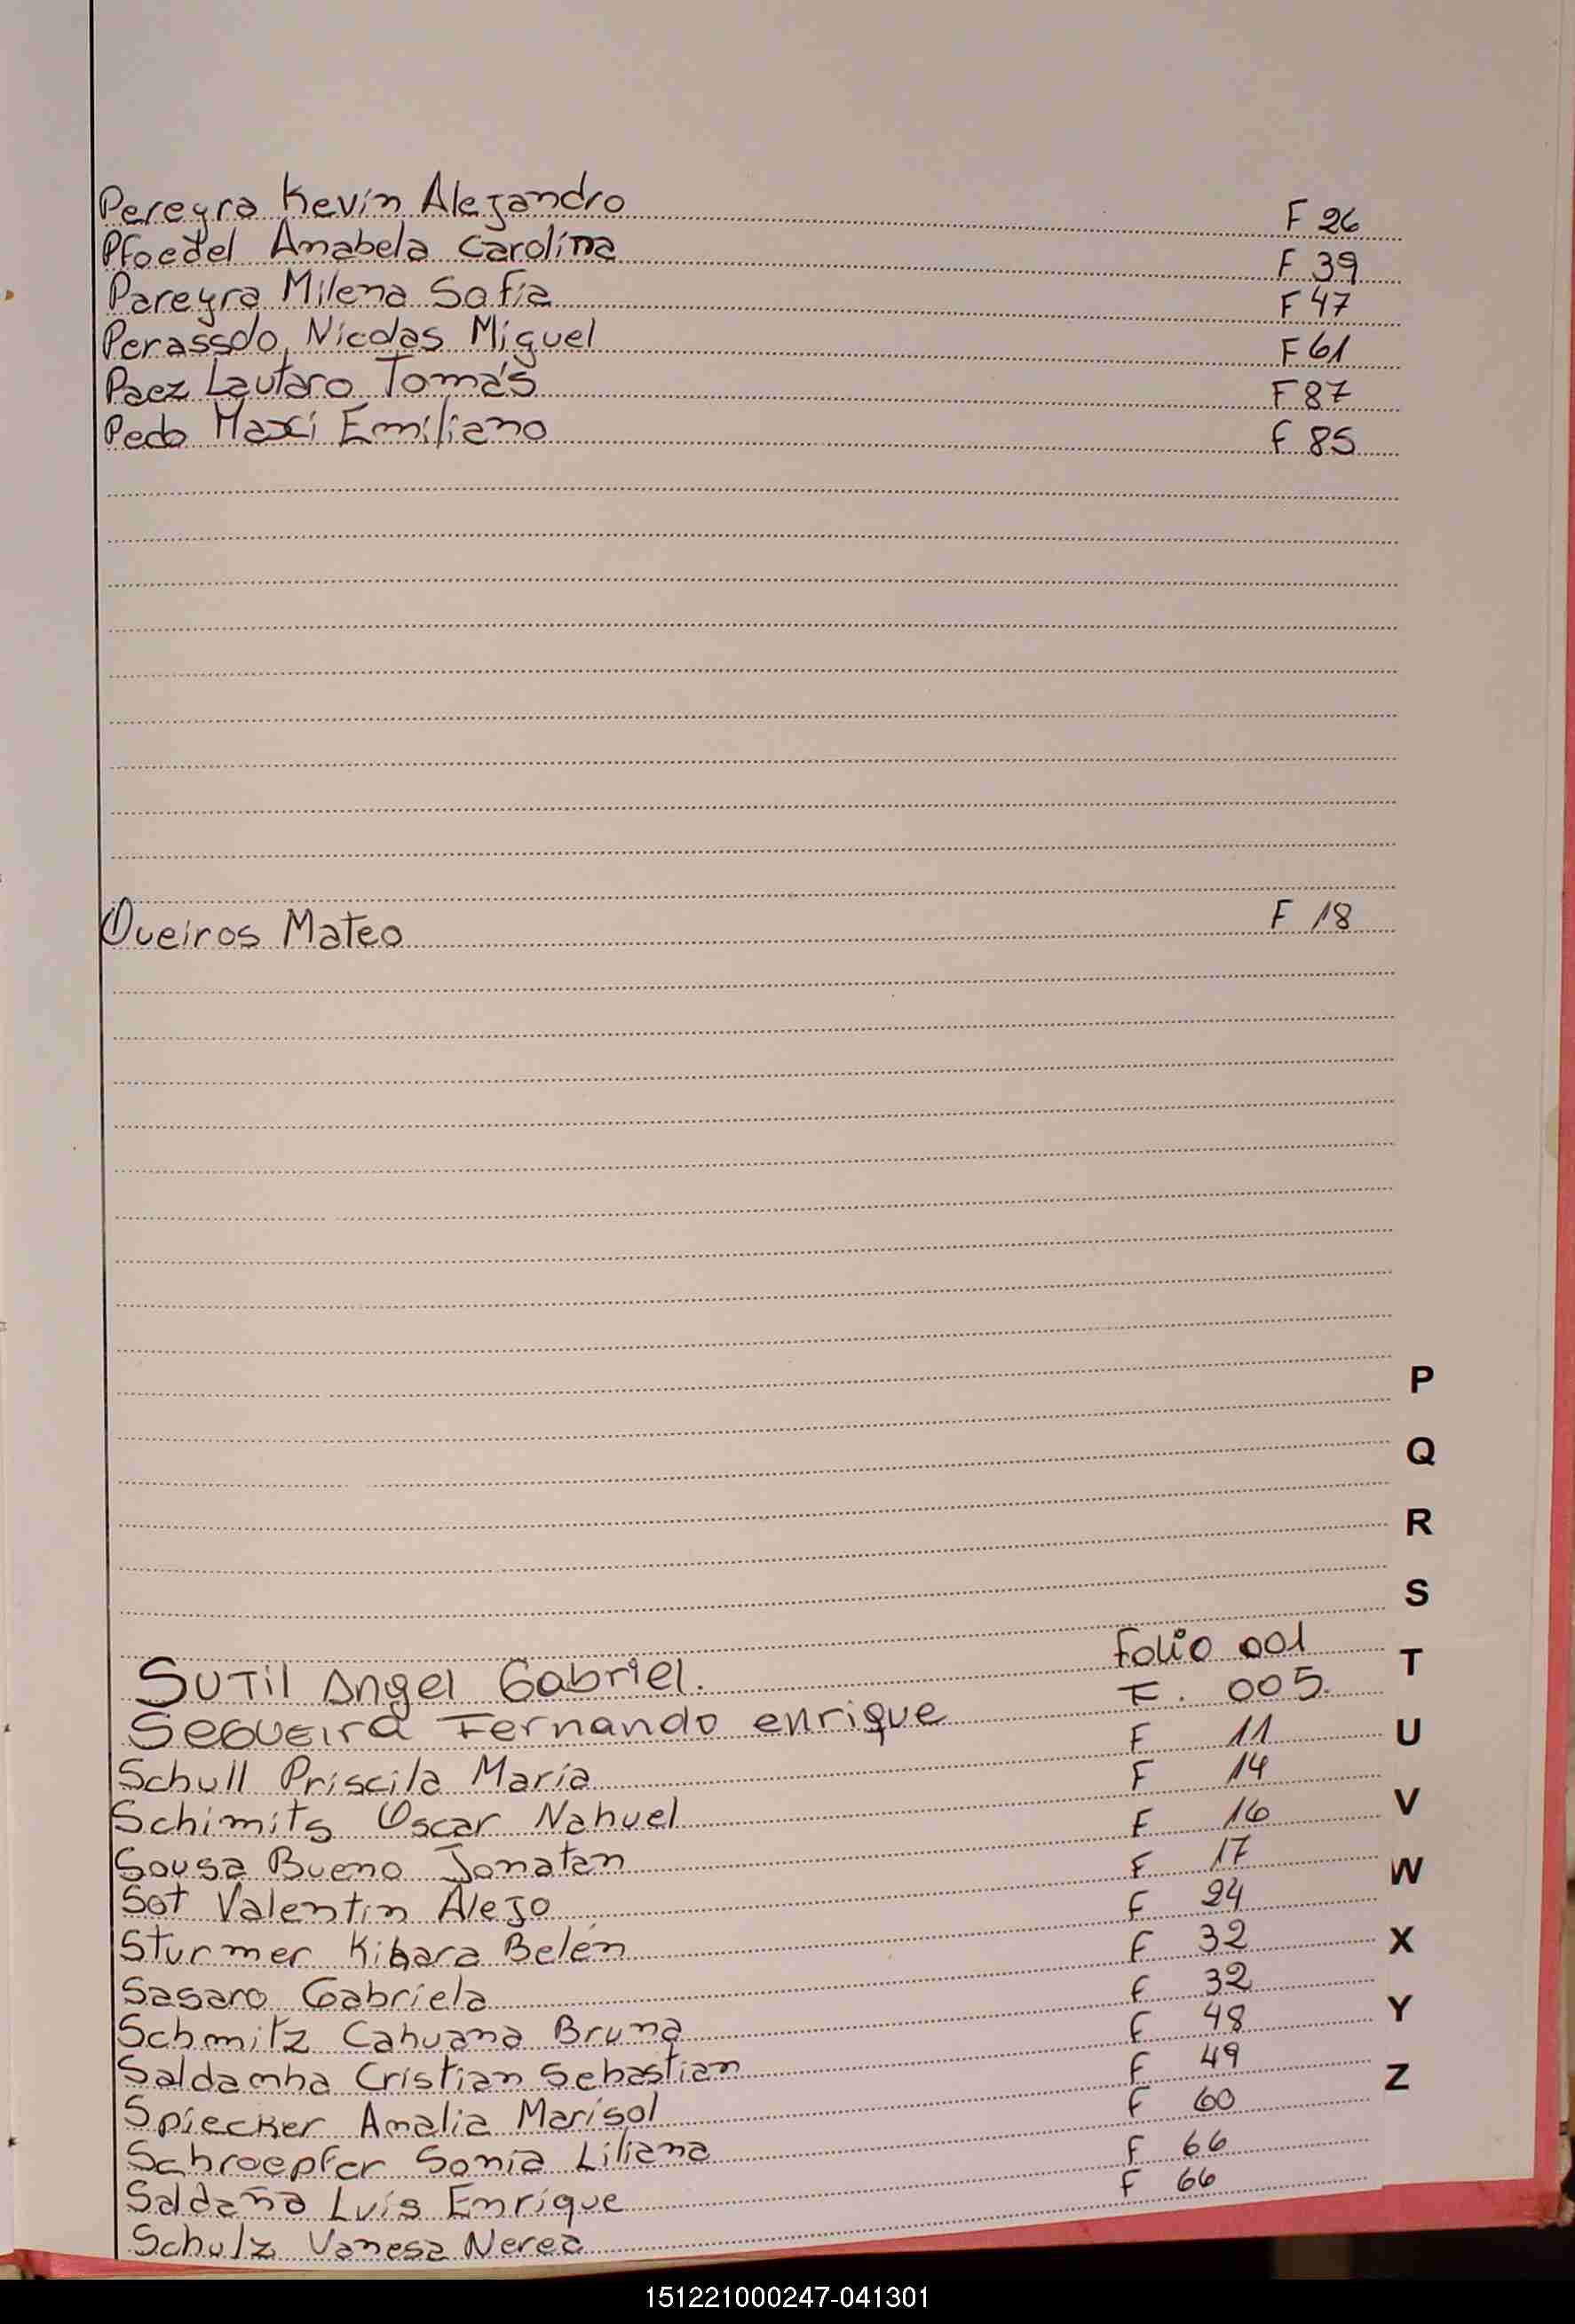 Pereyra Kevin Alejandro F 26
Pfoedel Anabela Carolina F 39
Pareyra Milena Sofia F 47
Perassolo, Nicolas Miguel F 61
Paez Lautaro Tomás F 87
Pedo Maxi Emiliano F 85
Queiros Mateo F 18
P
Q
R
S
T
U
V
W
X
Y
Z
SUTil Angel Gabriel. Folio 001
SEQUEIRA Fernando enrique F. 005.
Schull Priscila María F 11
Schimits Oscar Nahuel F 14
Sousa Bueno Jonatan F 16
Sot Valentín Alejo F 17
Sturmer Kihara Belén F 24
Sasaro Gabriela F 32
Schmitz Cahuana Bruna F 32
Saldanha Cristian Sebastian F 48
Spiecker Amalia Marisol F 49
Schroepfer Sonia Liliana F 60
Saldaña Luis Enrique F 66
Schulz Vanesa Nerea F 66
151221000247-041301